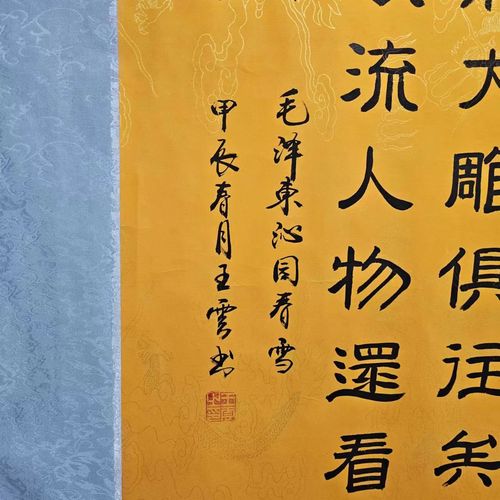 大雕俱往矣
流人物還看
毛泽東沁园春雪
甲辰春月王雲书